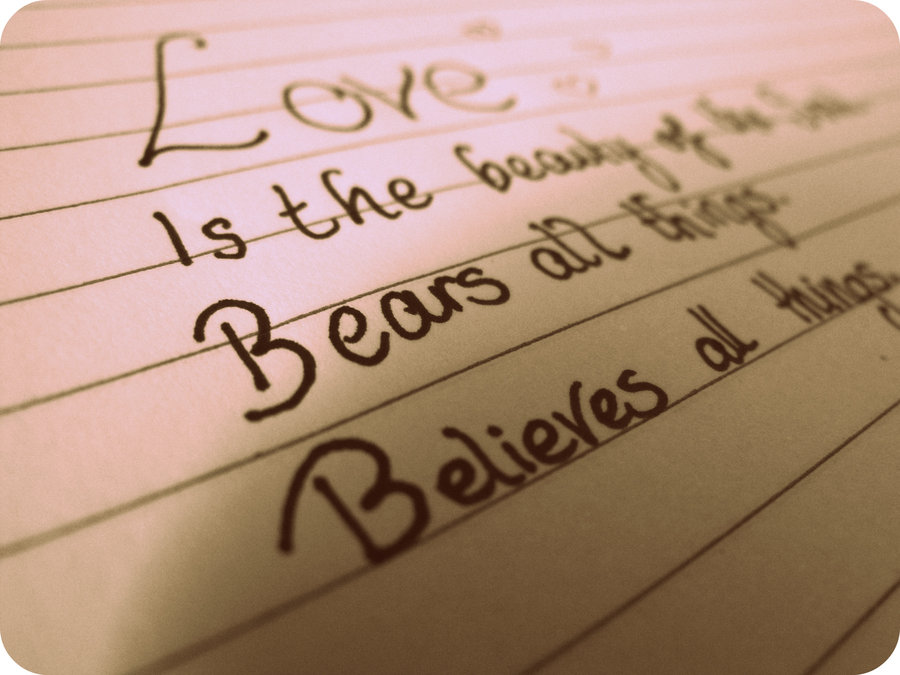 Love
Is the beauty of the Soul
Bears all things.
Believes all things.